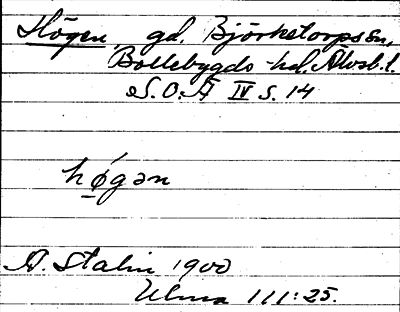 Högen, gd. Björketorps sn,
Bollebygds hd. Älvsb. l.
S.O.Ä IV S. 14
hǿ̱gən
A. Stalin 1900
Ulma 111:25.